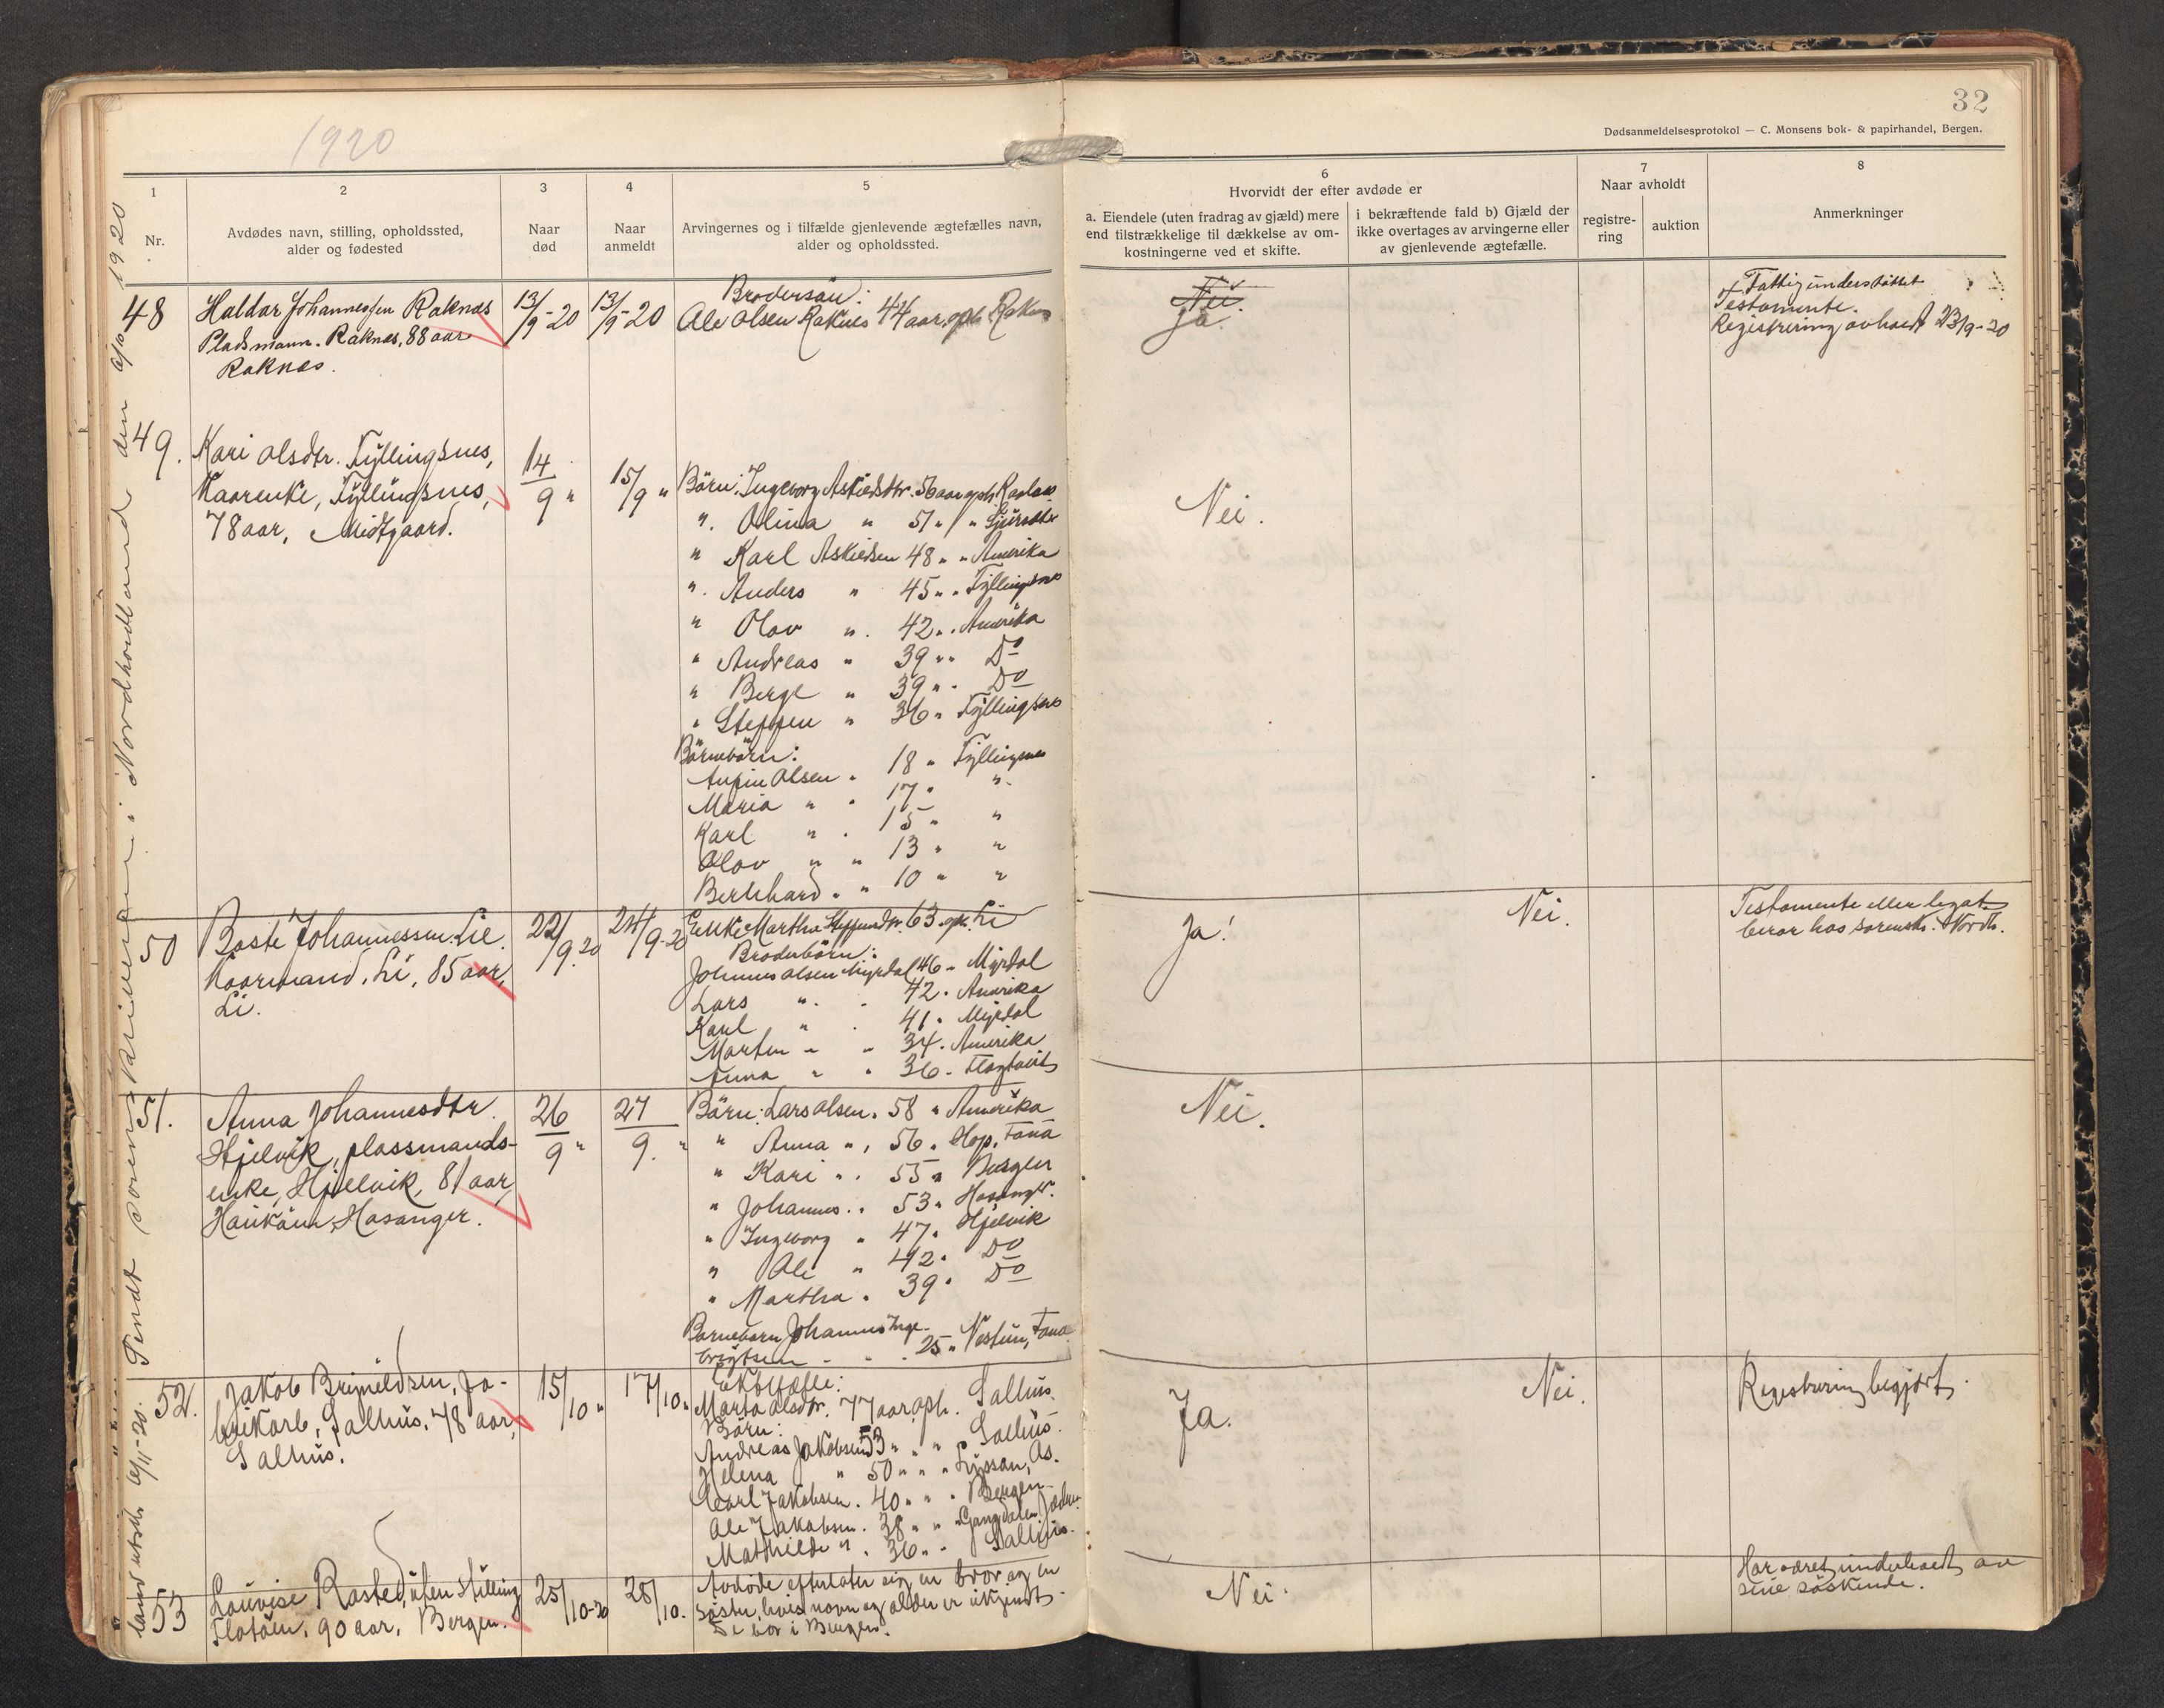 1920
32
Dødsanmeldelsesprotokol — C. Monsens bok- & papirhandel, Bergen.
1
2
3
4
5
6
7
8
Nr.
Avdødes navn, stilling, opholdssted,
alder og fødested
Naar
død
Naar
anmeldt
Arvingernes og i tilfælde gjenlevende ægtefælles navn,
alder og opholdssted.
Hvorvidt der efter avdøde er
a. Eiendele (uten fradrag av gjæld) mere
end tilstrækkelige til dækkelse av om-
kostningerne ved et skifte.
i bekræftende fald b) Gjæld der
ikke overtages av arvingerne eller
av gjenlevende ægtefælle.
Naar avholdt
registre-
ring
auktion
Anmerkninger
48
Haldor Johannessen Raknes
Pladsmann. Raknes, 88 aar
Raknes.
13/9-20
13/9-20
Brodersön:
Ole Olsen Raknes 44 aar, oph. Raknes
Nei.
Ja.
Fattigunderstöttet
Testamente.
Registrering avholdt 23/9-20
49.
Kari Olsdtr. Fyllingsnes,
Kaarenke, Fyllingsnes,
78 aar, Midtgaard.
14/9 "
15/9 "
Börn: Ingeborg Askieldsdtr. 56 aar oph
". Olina " 51 "
" Karl Askieldsen 48 " " Amerika
". Anders " 45 " " Fyllingsnes
" Olav ". 42 " . Amerika
" Andreas " 39 " " Do
" Berge " 39 " . Do
" Steffen " 36 " Fyllingsnes
Börnebörn:
Olsen " 18 " Fyllingsnes
Maria " " 17 " ".
Karl " . 15 " "
Olav " " 13 " "
Bernhard " " 10 " "
Nei.
50
Baste Johannessen Lie.
Kaarmand, Li, 85 aar,
Li.
22/9.20
24/9-20
Enke Martha Steffensdtr. 63. oph. Li
Broderbörn:
Johannes Olsen Myrdal 46 " Myrdal
Lars ". . 42 . Amerika
Karl " . 41 . Myrdal
Morten " " 34 . Amerika
Anna " " 36 .
Ja!
Nei.
Testamente eller legat
beror hos sorenskr. Nordh.
51.
Anna Johannesdtr.
Hjelvik, plassmands-
enke, Hjelvik, 81 aar,
Haukaas, Hosanger.
26/9 "
27/9. "
Börn: Lars Olsen. 58 " Amerika
" Anna ", 56 . Hop, Fana
" Kari " . 55 " Bergen
" Johannes. . 53 " Hosanger.
" Ingeborg " 47 " Hjelvik
" Ole " 42 . Do
" Martha . 39 . Do
Barnebarn Johannes Inge-
brigtsen - . . 25 " Nestun, Fana
Nei.
52.
Jakob Brynieldsen, fa-
brikarb, Salhus, 78 aar,
Salhus.
15/10 "
17/10 "
Ektefælle:
Marta Olsdtr. 77 aar, oph. Salhus.
Börn:
Andreas Jakobsen 53 " " " Salhus.
Helena " 50 " " " Syssan, As.
Carl Jakobsen. 40 " " . Bergen
Ole Jakobsen. 38 " "
Mathilde ". 36 " . Salhus.
Ja.
Nei.
Registrering begjært.
53
Louvise Rasted, uten stilling
Flatöen, 90 aar, Bergen.
25/10-20
28/10.
Avdöde efterlater sig en bror og en
söster, hvis navn og alder er ukjendt.
De bor i Bergen.
Nei.
Har været underholdt av
sine söskende.
Sendt sorenskriveren i Nordhordland den 9/10 1920
6/11-20.